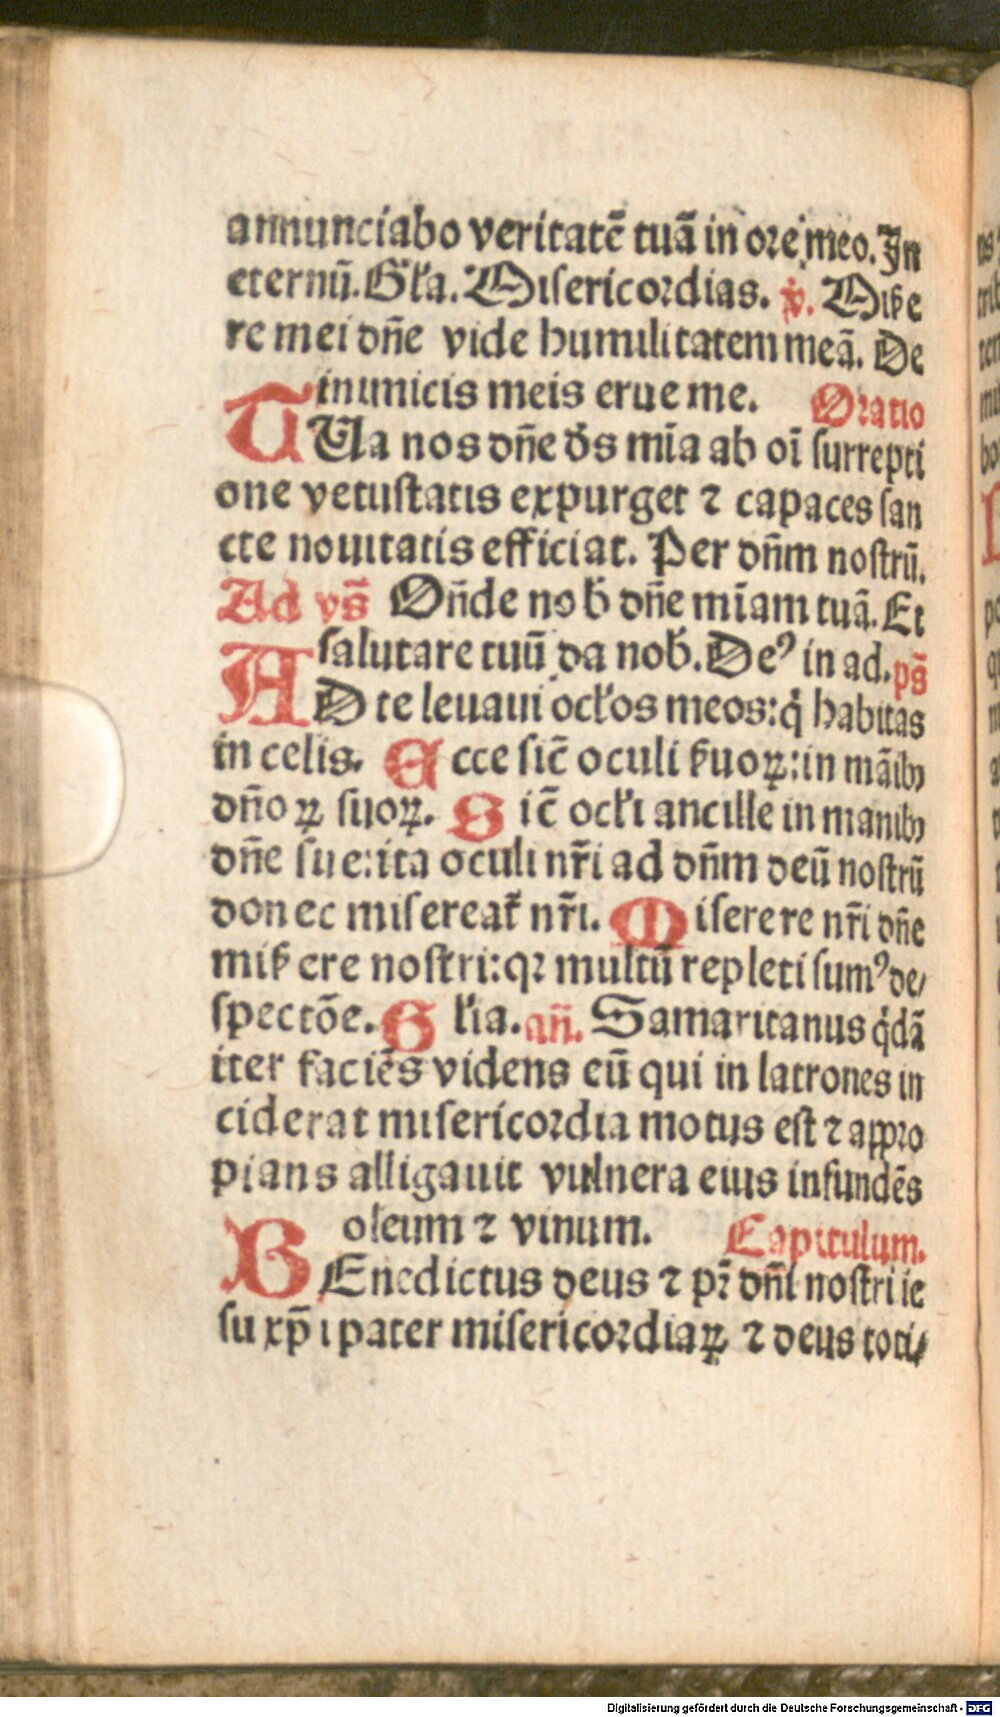 annunciabo veritatē tuā in ore meo. In
eternū. Gl'a. Misericordias. v̄. Mise
re mei dn̄e vide humilitatem meā. De
inimicis meis erue me. Oratio
TUa nos dn̄e d̄s mīa ab oī surrepti
one vetustatis expurget ⁊ capaces san
cte nouitatis efficiat. Per dn̄m nostrū.
Ad vs̄ On̄de nob̄ dn̄e mīam tuā. Et
salutare tuū da nob̄. Deꝰ in ad. ps̄
AD te leuaui ocl'os meos: q̇ habitas
in celis. Ecce sic̄ oculi ẜuoꝝ: in māibꝫ
dn̄oꝝ suoꝝ. Sic̄ ocl'i ancille in manibꝫ
dn̄e sue: ita oculi nr̄i ad dn̄m deū nostrū
donec misereat᷑ nr̄i. Miserere nr̄i dn̄e
miẜere nostri: qꝛ multū repleti sumꝰ de/
spectōe. Gl'ia. an̄. Samaritanus q̇dā
iter faciēs videns eū qui in latrones in
ciderat misericordia motus est ⁊ appro
pians alligauit vulnera eius infundēs
oleum ⁊ vinum. Capitulum.
BEnedictus deus ⁊ pr̄ dn̄i nostri ie
su xp̄i pater misericordiaꝝ ⁊ deus toti/
Digitalisierung gefördert durch die Deutsche Forschungsgemeinschaft - DFG